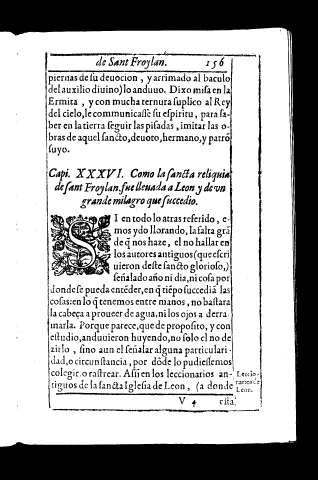 de Sant Froylan. 156
piernas de su deuocion, y arrimado al baculo
del auxilio diuino) lo anduuo. Dixo missa en la
Ermita, y con mucha ternura suplico al Rey
del cielo, le communicasse su espiritu, para sa-
ber en la tierra seguir las pisadas, imitar las o-
bras de aquel sancto, deuoto, hermano, y patrõ
suyo.
Capi. XXXVI. Como la sancta reliquia
de sant Froylan, fue lleuada a Leon y de vn
grande milagro que succedio.
SI en todo lo atras referido, e-
mos ydo llorando, la falta grã
de q̃ nos haze, el no hallar en
los autores antiguos (que escri
uieron deste sancto glorioso,)
señalado año ni dia, ni cosa por
donde se pueda entẽder, en q̃ tiẽpo succediã las
cosas: en lo q̃ tenemos entre manos, no bastara
la cabeça a proueer de agua, ni los ojos a derra
marla. Porque parece, que de proposito, y con
estudio, anduuieron huyendo, no solo el no de
zirlo, sino aun el señalar alguna particulari-
dad, o circunstancia, por dõde lo pudiessemos
colegir, o rastrear. Assi en los leccionarios an-
tiguos de la sancta Iglesia de Leon, (a donde
Leccio-
narios de
Leon.
V 4 esta